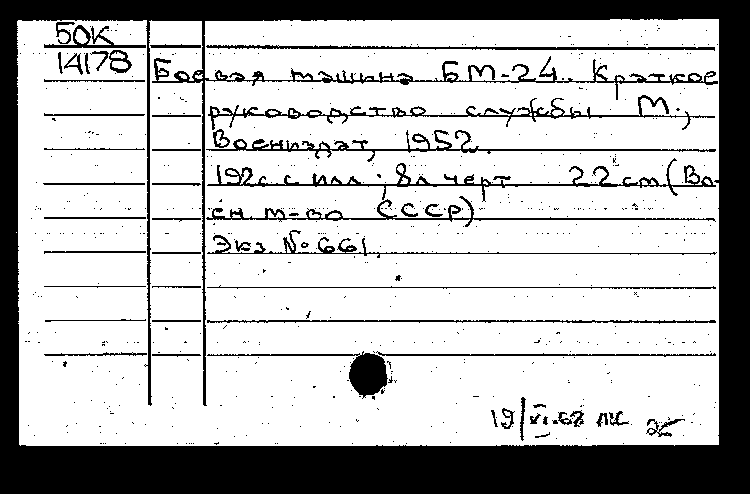 БОК
14178 Боевая машина БМ-24. Краткое
руководство службы. М.,
Воениздат, 1952.
192с. с илл.; 8л. черт. 22 cm (Во-
ен. м-во СССР).
Экз. № 661.
19/VI.68